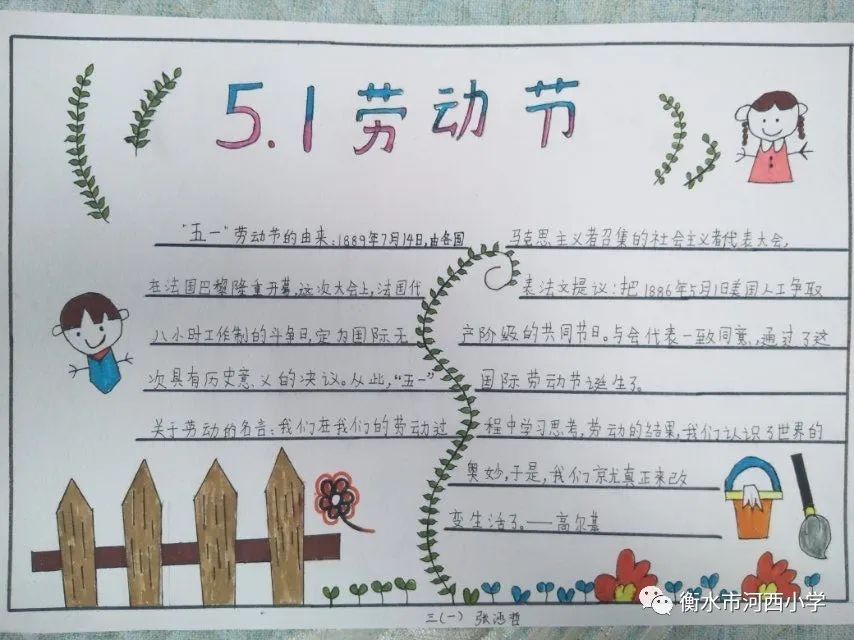 5.1劳动节
"五一"劳动节的由来:1889年7月14日,由各国马克思主义者召集的社会主义者代表大会,
在法国巴黎隆重开幕,这次大会上,法国代表法文提议:把1886年5月1日美国人工争取
八小时工作制的斗争日,定为国际无产阶级的共同节日。与会代表一致同意,通过了这
次具有历史意义的决议。从此,"五一"国际劳动节诞生了。
关于劳动的名言:我们在我们的劳动过程中学习思考,劳动的结果,我们认识了世界的
奥妙,于是,我们就真正来改
变生活了。——高尔基
三(一)
衡水市河西小学